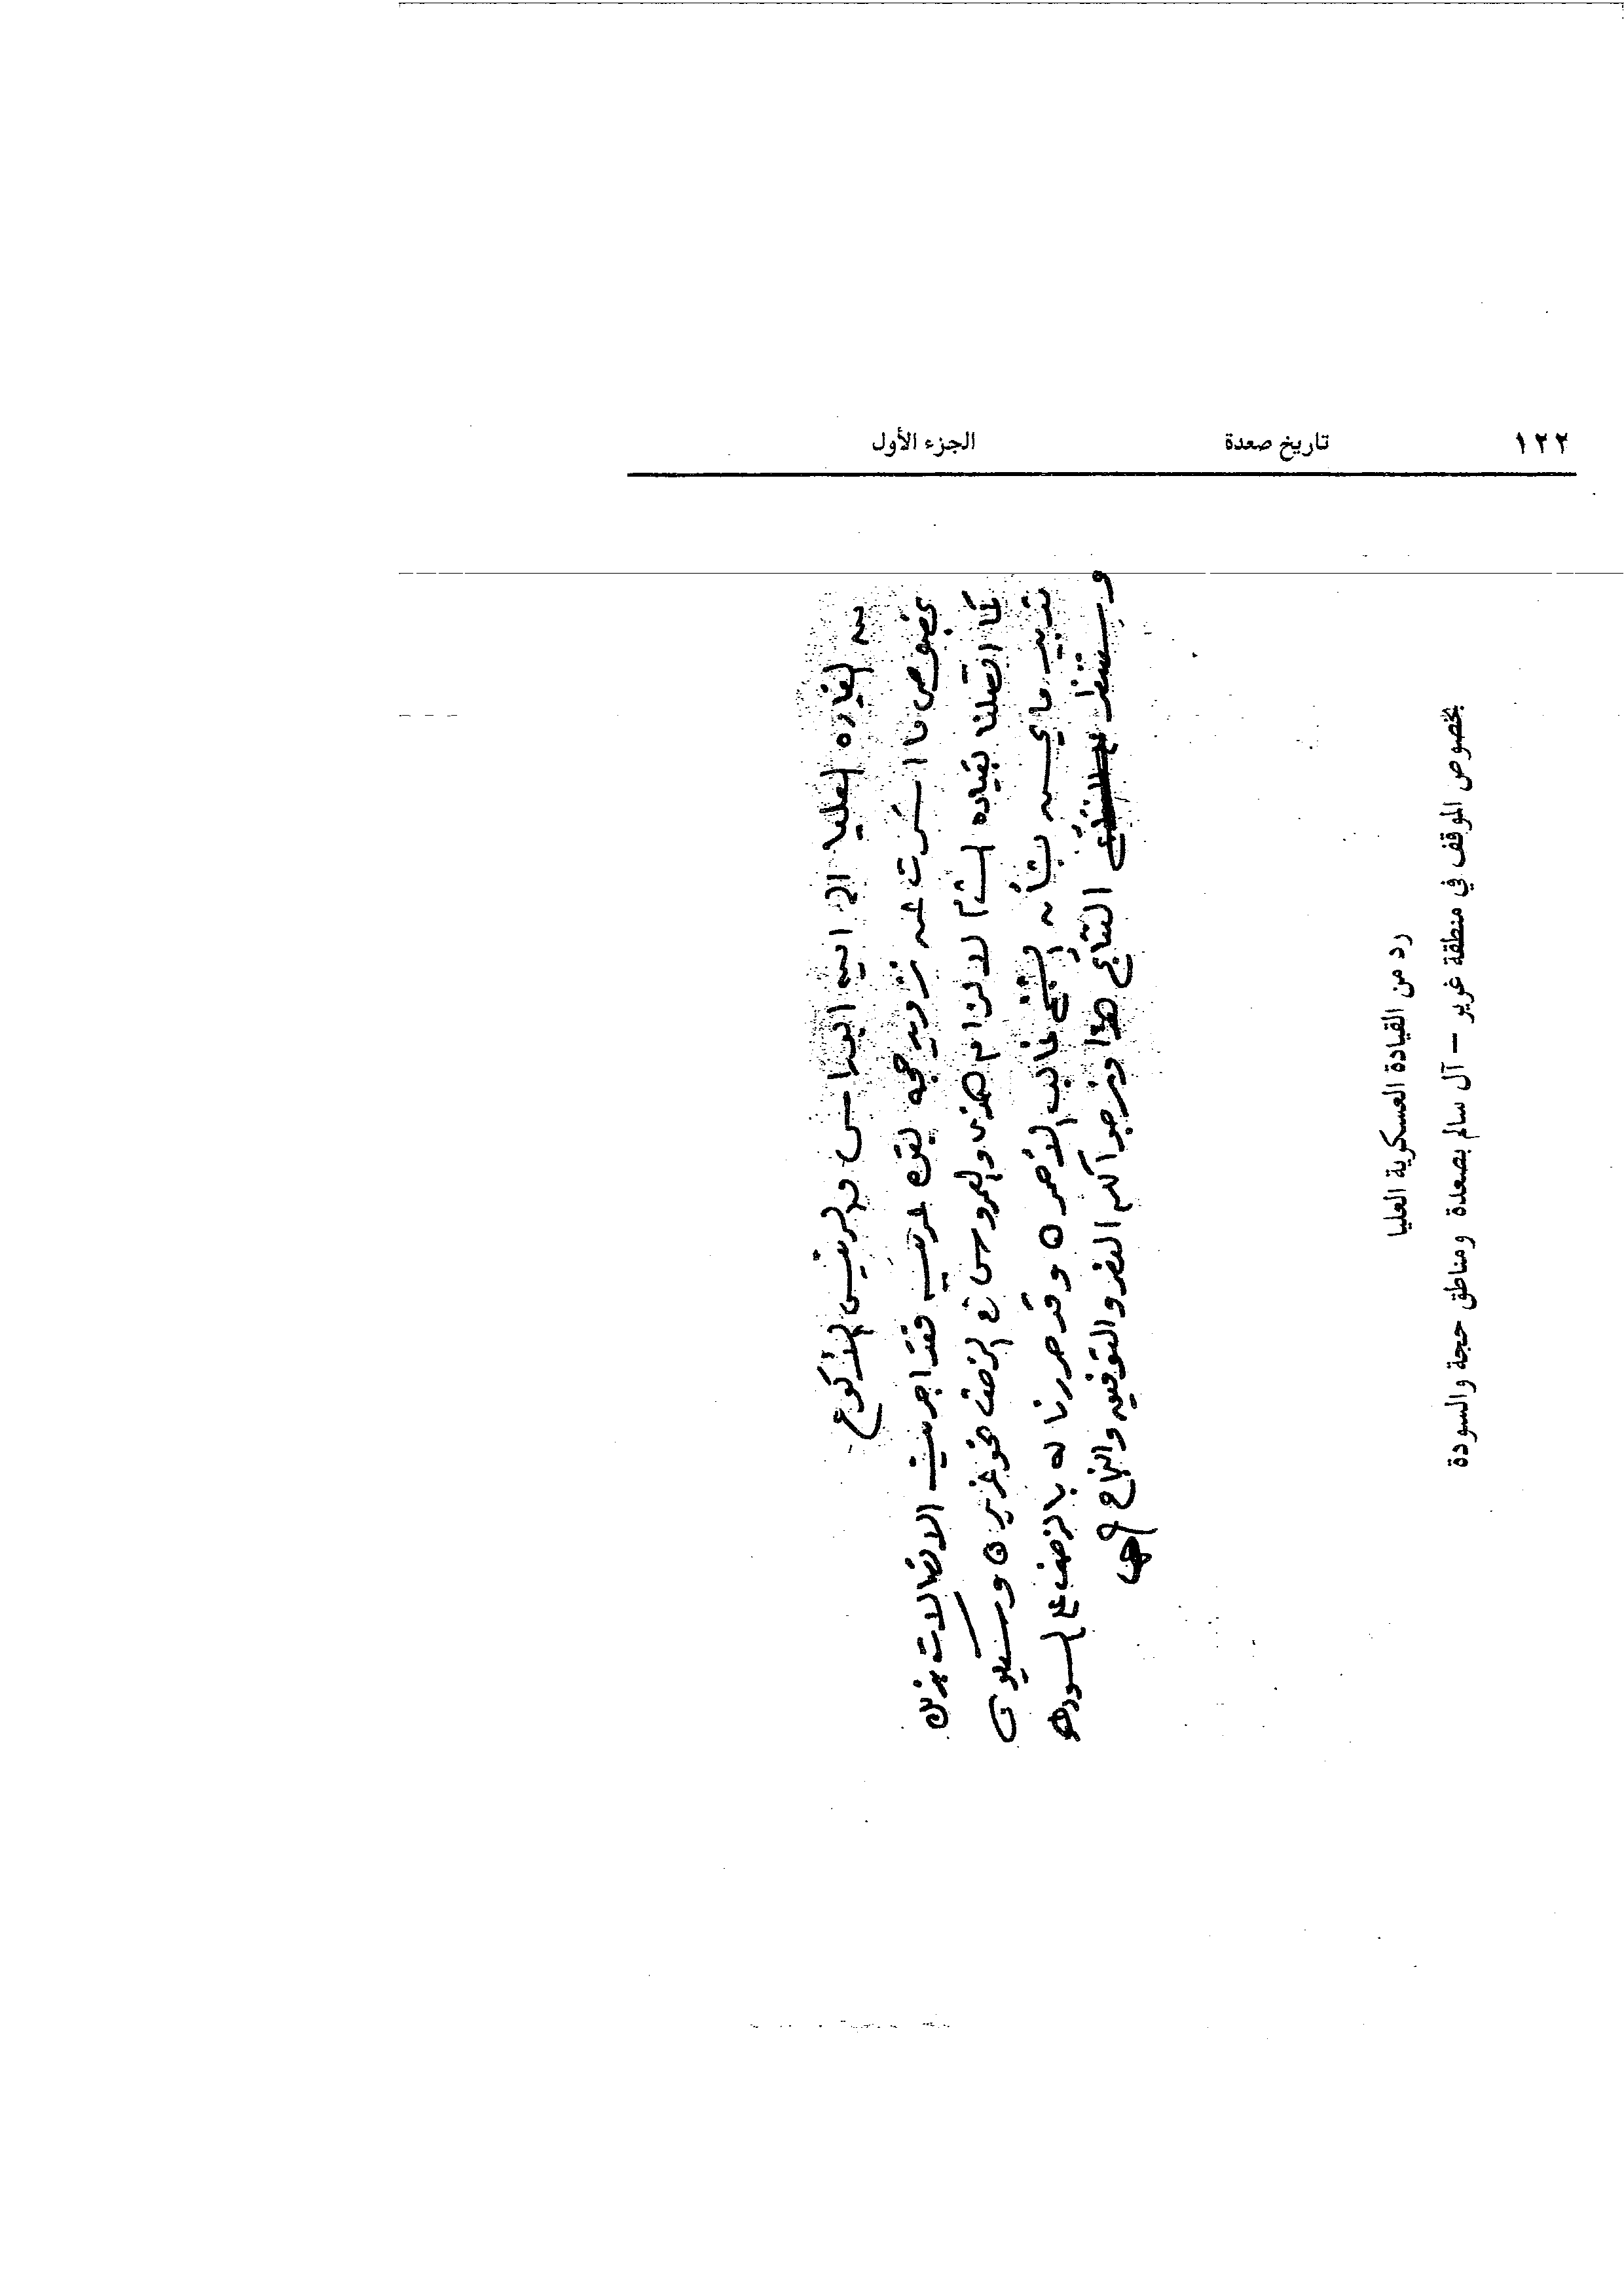 ١٢٢ تاريخ صعدة الجزء الأول
من القيادة العليا الى ابراس والرئيس الأكوع
بخصوص ما اشرت عن تزويد حجه بقوه فقد اجريت الاتصالات بذلك
كما اتصلنا بقياده الشام لالزام والعروس الزحف نحو غرير وسيكون
تدبير ما يحسن بشأن الشيخ غالب الأحمر وقد حررنا له بالزحف على السوده
وسننتظر النتائج هذا ونرجوا لكم النصر والتوفيق والنجاح
رد من القيادة العسكرية العليا
بخصوص الموقف في منطقة غرير – آل سالم بصعدة ومناطق حجة والسودة